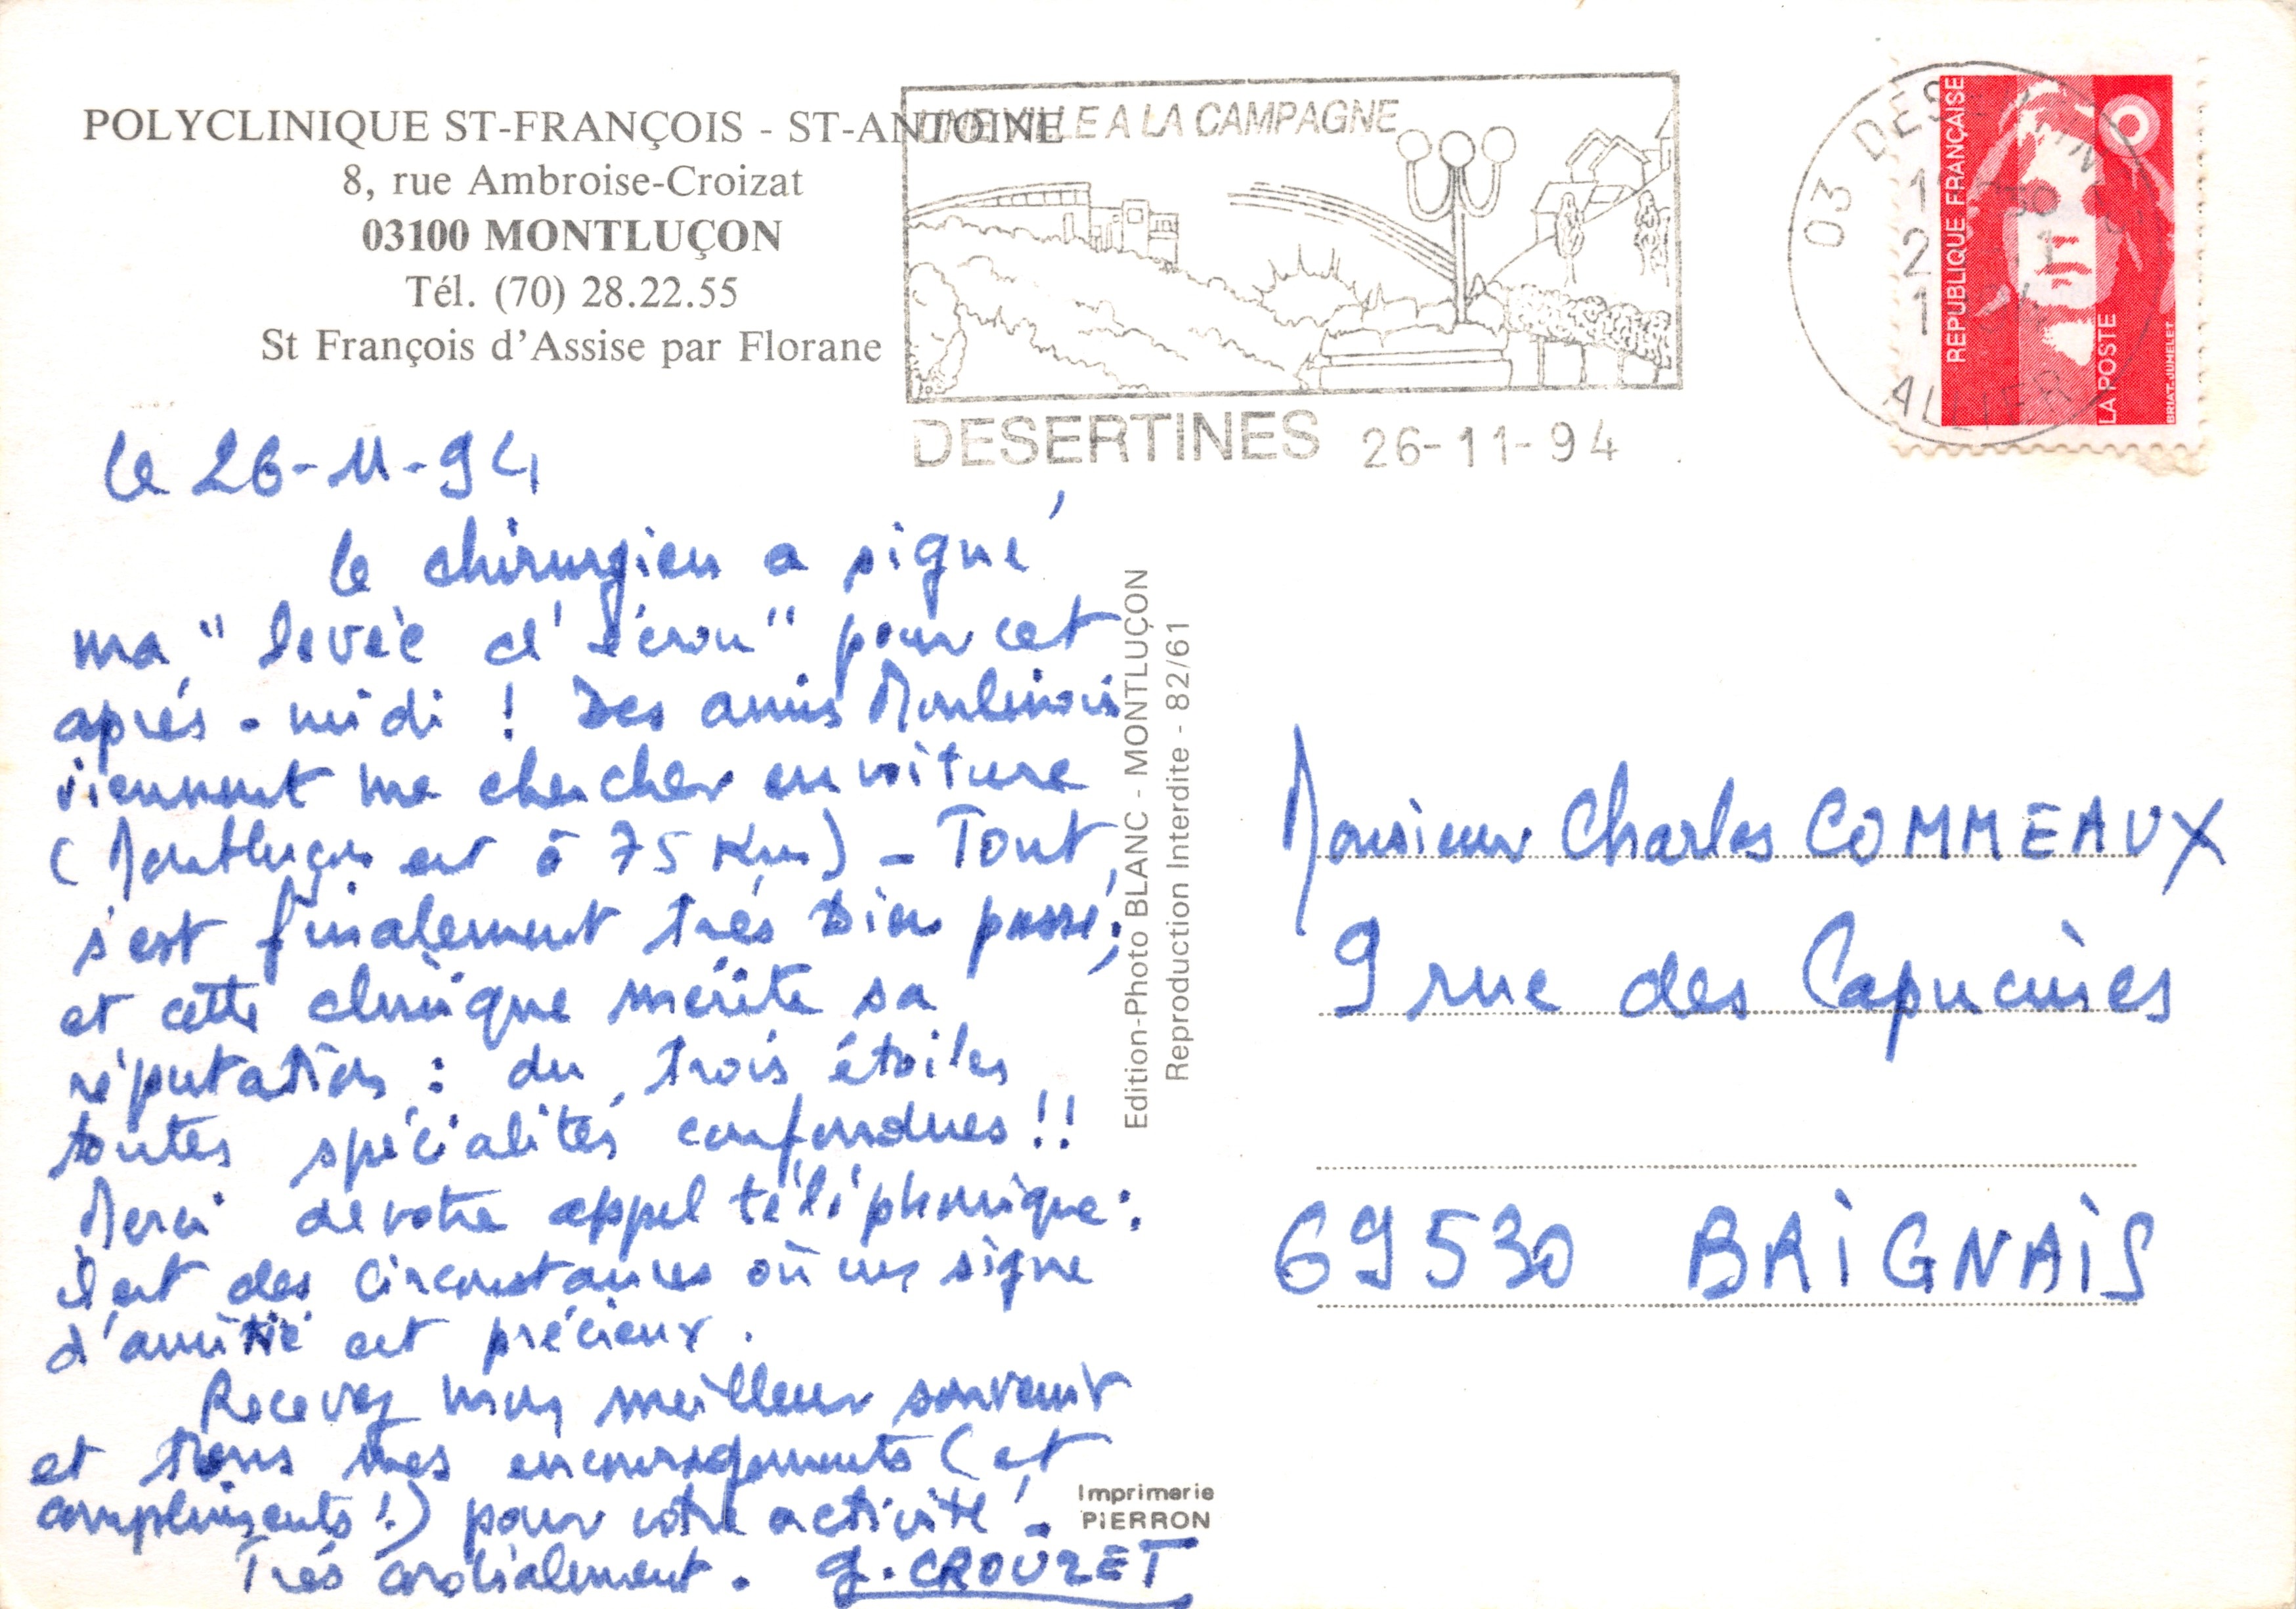 POLYCLINIQUE ST-FRANÇOIS - ST-ANTOINE
8, rue Ambroise-Croizat
03100 MONTLUÇON
Tél. (70) 28.22.55
St François d'Assise par Florane
UNE VILLE A LA CAMPAGNE
DESERTINES 26-11-94
03 DESERTINES
ALLIER
REPUBLIQUE FRANÇAISE
LA POSTE
BRIAT-JUMELET
le 26-11-94
le chirurgien a signé
ma "levée d'écrou" pour cet
après-midi ! Des amis Moulinois
viennent me chercher en voiture
(Montluçon est à 75 Km) - Tout
s'est finalement très bien passé;
et cette clinique mérite sa
réputation : du trois étoiles
toutes spécialités confondues !!
Merci de votre appel téléphonique :
il est des circonstances où un signe
d'amitié est précieux.
Recevez mon meilleur souvenir
et tous mes encouragements (et
compliments !) pour votre activité.
Très cordialement. G. CROUZET
Edition-Photo BLANC - MONTLUÇON
Reproduction Interdite - 82/61
Imprimerie
PIERRON
Monsieur Charles COMMEAUX
9 rue des Capucines
69530 BRIGNAIS